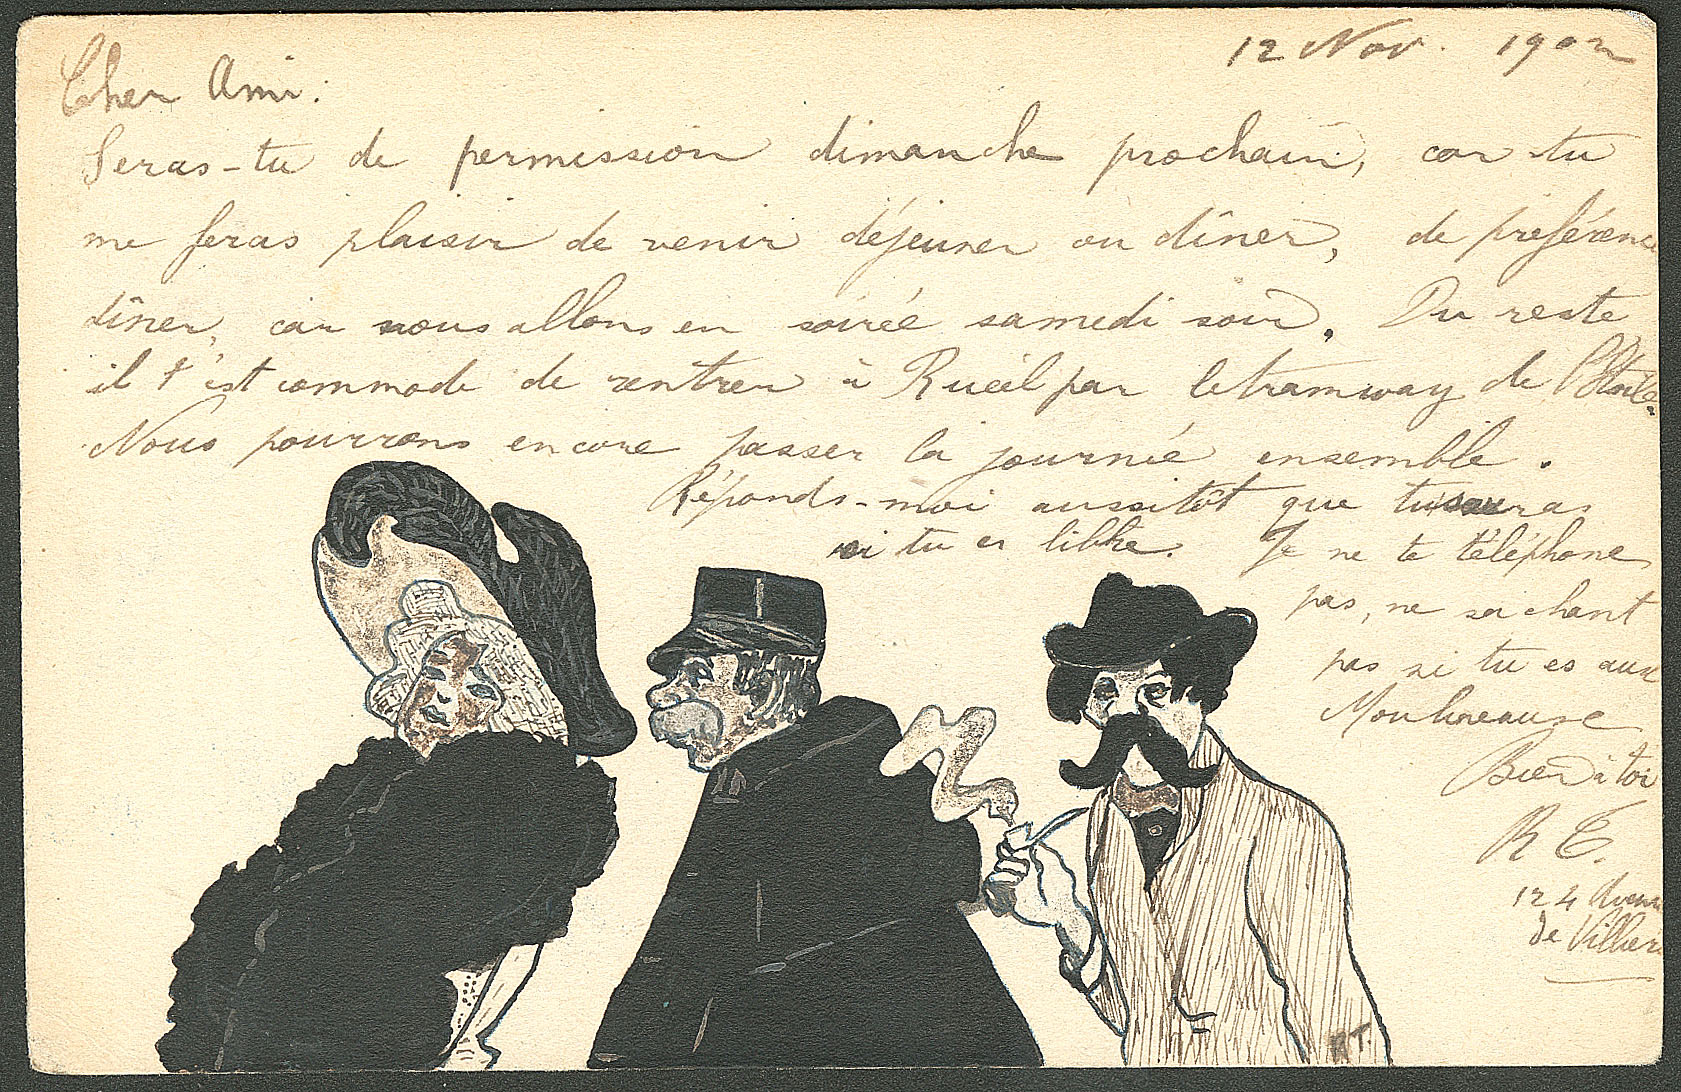 12 Nov. 1902
Cher Ami.
Seras-tu de permission dimanche prochain, car tu
me feras plaisir de venir déjeuner ou dîner, de préférence
dîner, car nous allons en soirée samedi soir. Du reste
il t'est commode de rentrer à Rueil par le tramway de l'Etoile.
Nous pourrons encore passer la journée ensemble.
Réponds-moi aussitôt que tu sauras
si tu es libre. Je ne te téléphone
pas, ne sachant
pas si tu es aux
Moulineaux
Bien à toi
R T.
124 Avenue
de Villiers
RT.